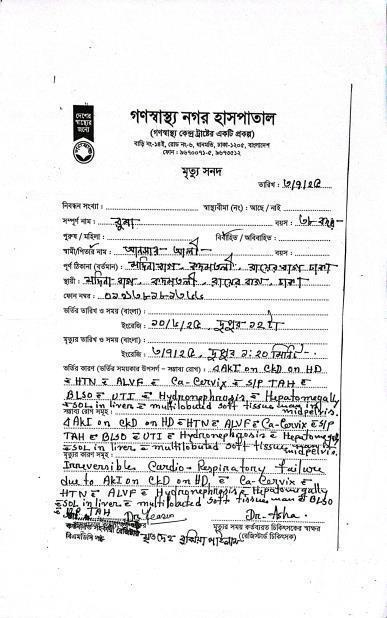 দেশের
স্বাস্থ্যের
জন্যে
গণস্বাস্থ্য নগর হাসপাতাল
(গণস্বাস্থ্য কেন্দ্র ট্রাষ্টের একটি প্রকল্প)
বাড়ি নং-১৪ই, রোড নং-৬, ধানমন্ডি, ঢাকা-১২০৫, বাংলাদেশ
ফোন : ৯৬৭০০৭১-৫, ৯৬৭৩৫১২
মৃত্যু সনদ
তারিখ : ৩/৭/২৫
নিবন্ধন সংখ্যা : স্বাস্থ্যবীমা (নং) : আছে / নাই
সম্পূর্ণ নাম : রুমা বয়স : ৩৮ বছর
পুরুষ / মহিলা : বিবাহিত / অবিবাহিত :
স্বামী/পিতার নাম : আনসার আলী বয়স :
পূর্ণ ঠিকানা (বর্তমান) : মদিনাবাগ কদমতলী, ঢাকা
স্থায়ী : মদিনাবাগ কদমতলী, ঢাকা
ফোন নম্বর :
ভর্তির তারিখ ও সময় (বাংলা) :
ইংরেজি : ২০/৬/২৫ দুপুর ১২টা
মৃত্যুর তারিখ ও সময় (বাংলা) :
ইংরেজি : ৩/৭/২৫, দুপুর ২:২০ মিনিট
ভর্তির কারণ (ভর্তির সময়কার উপসর্গ - সম্ভাব্য রোগ) : AKI on CKD on HD
c HTN c ALVF c Ca-Cervix c S/P TAH c
BLSO c UTI c Hydronephrosis c Hepatomegally
c SOL in liver c multilobuted soft tissue mass midpelvis.
সম্ভাব্য রোগ সমূহ :
AKI on CKD on HD c HTN c ALVF c Ca-Cervix c S/P
TAH c BLSO c UTI c Hydronephrosis c Hepatomegally
c SOL in liver c multilobuted soft tissue mass midpelvis.
মৃত্যুর কারণ সমূহ :
Irreversible Cardio-Respiratory failure
due to AKI on CKD on HD, c Ca-Cervix c
HTN c ALVF c Hydronephrosis c Hepatomegally
c SOL in liver c multilobuted soft tissue mass c BLSO
c S/P TAH Dr. Yeasin Dr. Asha.
মৃত্যুর সময় কর্তব্যরত চিকিৎসকের স্বাক্ষর
(রেজিস্টার্ড চিকিৎসক)
বিএমডিসি নং-
মৃতদেহ বুঝিয়া পাইলাম